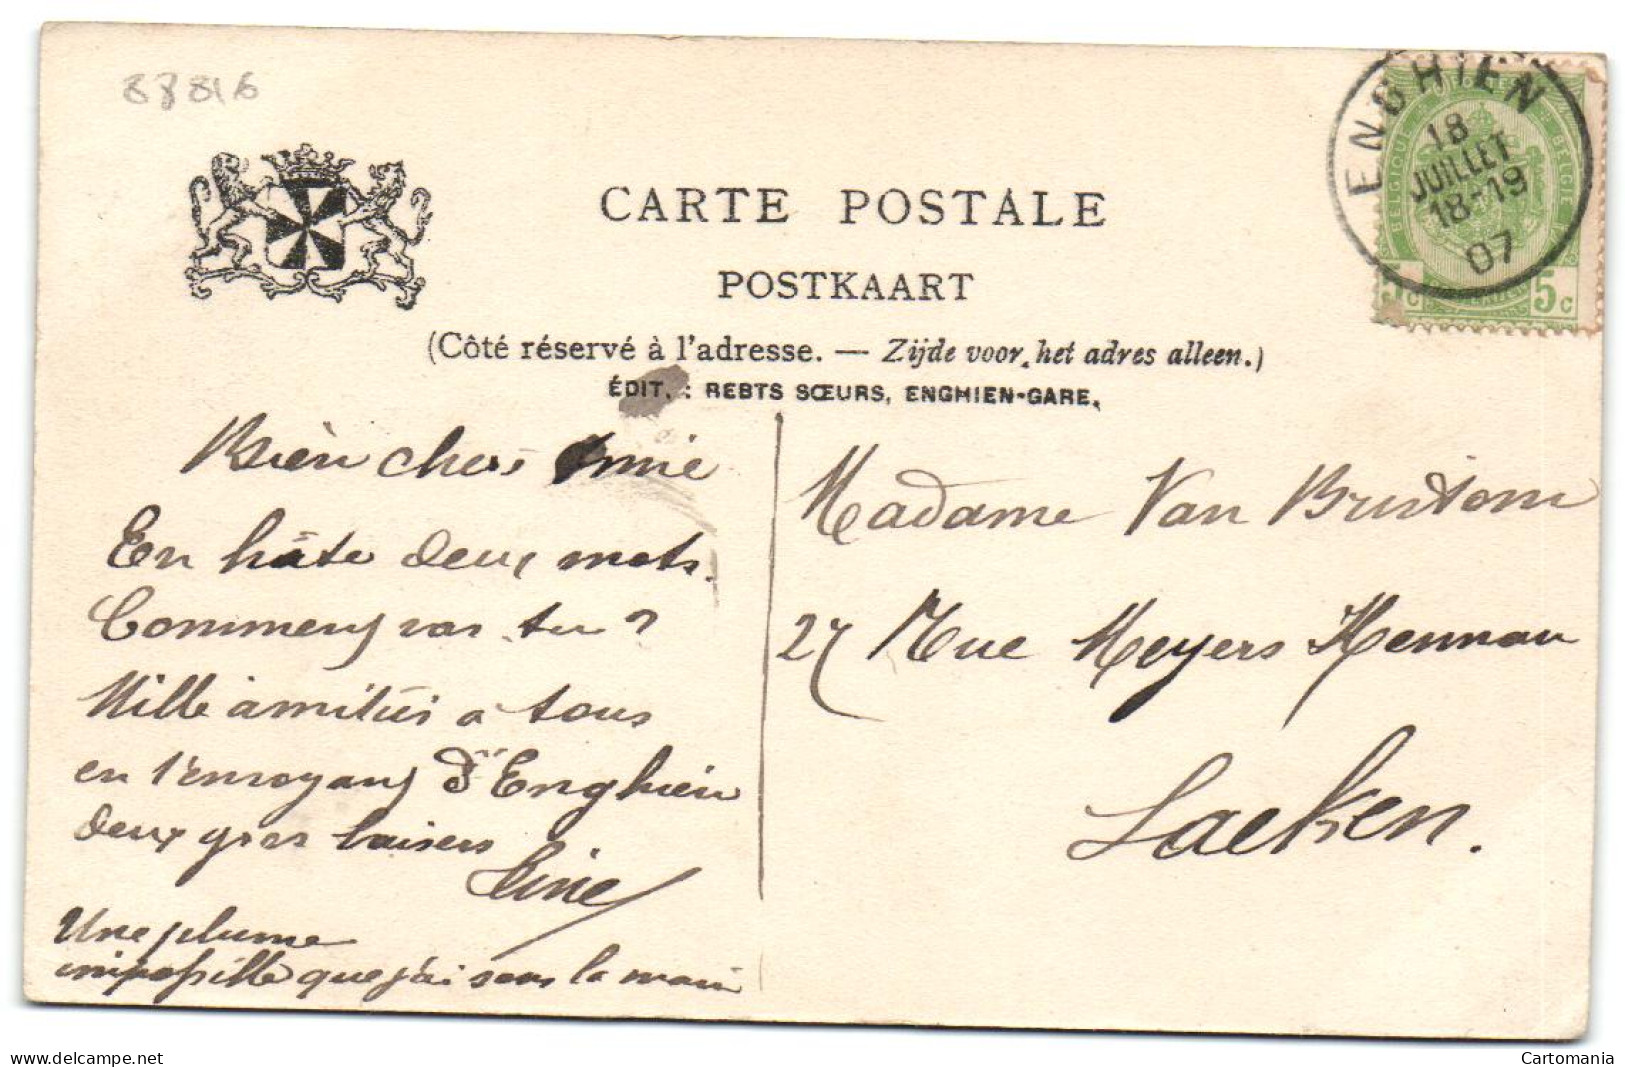 88816
CARTE POSTALE
POSTKAART
(Côté réservé à l'adresse. — Zijde voor het adres alleen.)
ÉDIT. : REBTS SŒURS, ENGHIEN-GARE.
ENGHIEN
18
JUILLET
18-19
07
BELGIQUE BELGIE
5c 5c
Bien chère Amie
En hâte deux mots.
Comment vas tu ?
Mille amitiés à tous
en t'envoyant d'Enghien
deux gros baisers
Une plume
impossible que j'ai sous la main
Madame Van
27 Rue Meyers Hennau
Laeken.
delcampe.net
Cartomania